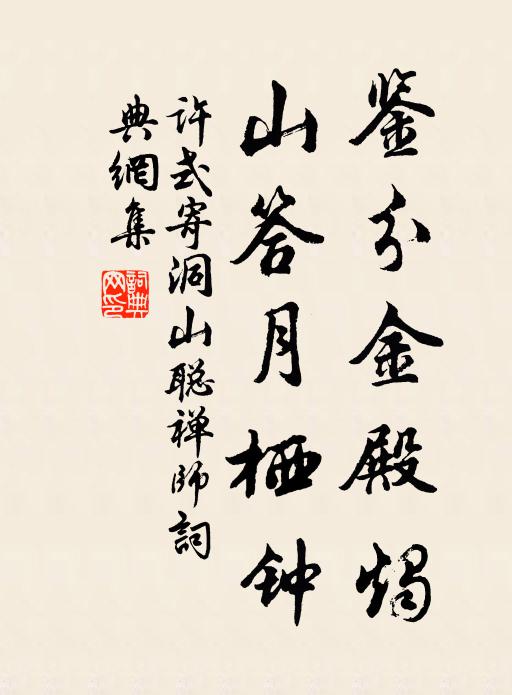 鉴分金殿烛
山答月栖钟
许式寄洞山聪禅师詞
典網集
詞典網印